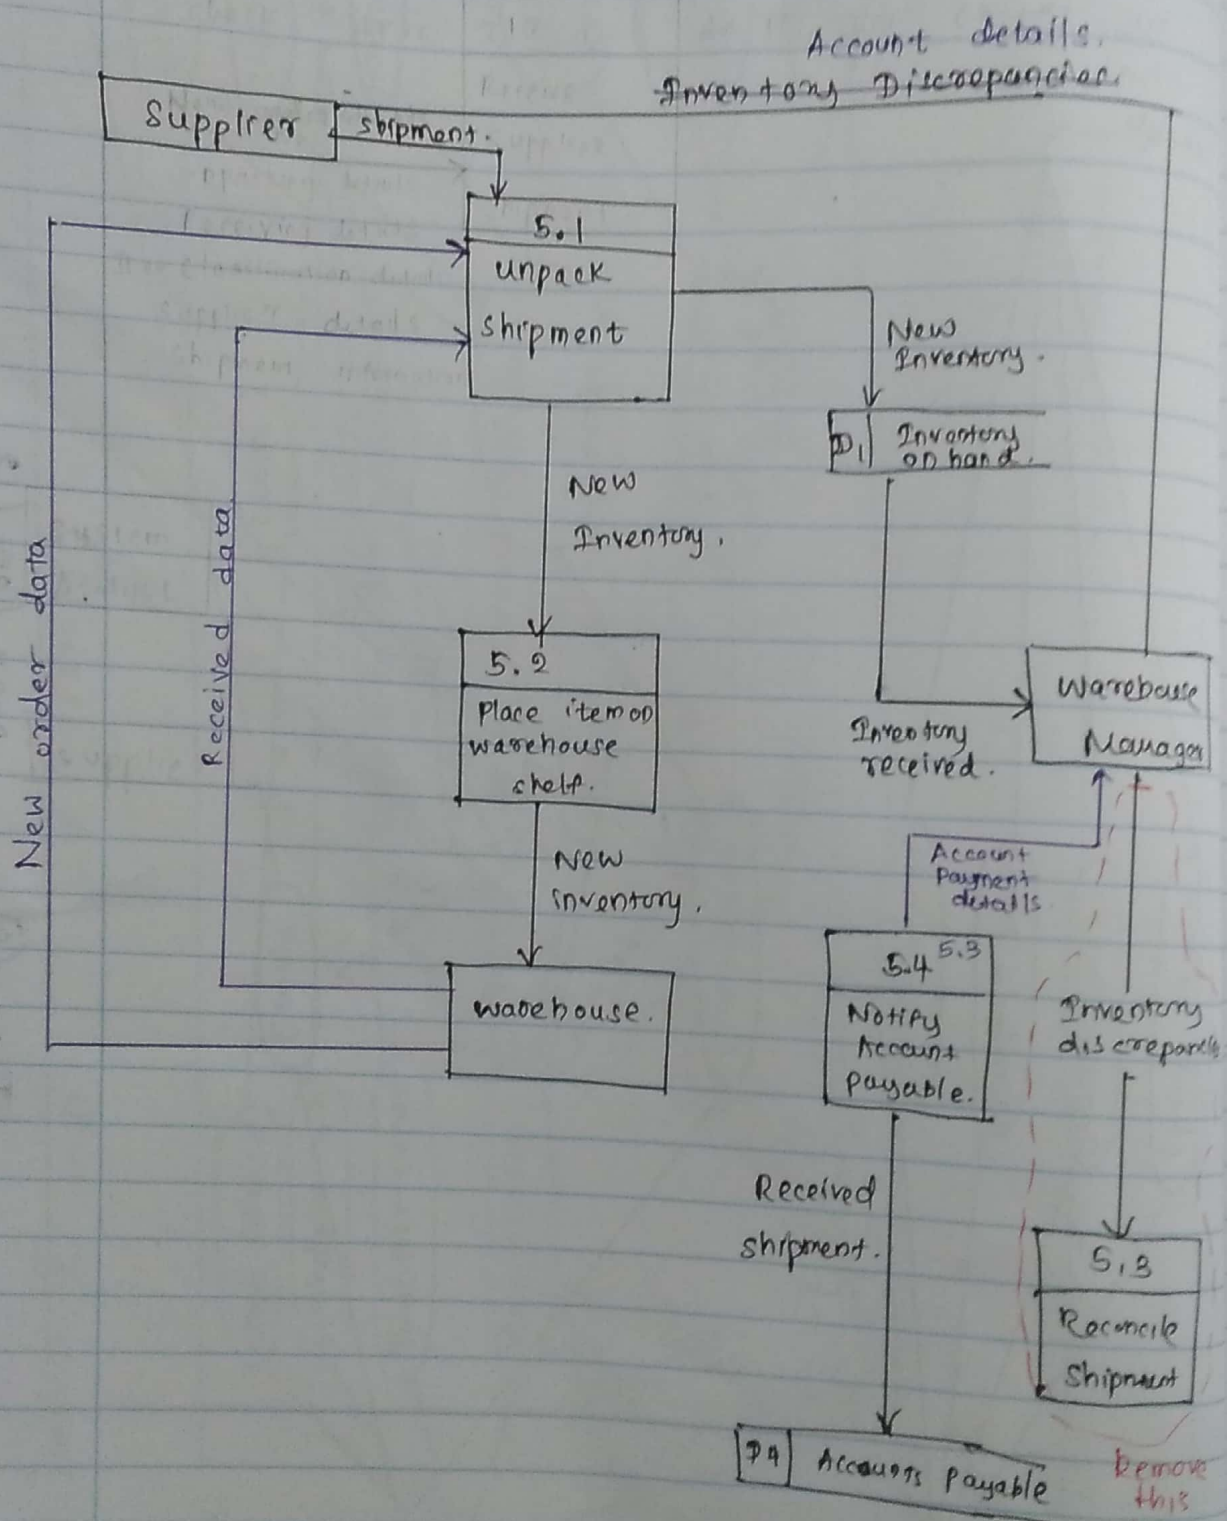 Account details.
Inventory Discrepancies.
Supplier
shipment.
5.1
unpack
shipment
New
Inventory.
D1
Inventory
on hand.
New
Inventory.
New order data
Received data
5.2
Place item on
warehouse
shelf.
Warehouse
Manager
Inventory
received.
Account
Payment
details
New
inventory.
5.4
5.3
Notify
Account
payable.
warehouse.
Inventory
Received
shipment.
5.3
Reconcile
Shipment
D4
Accounts Payable
Remove
this